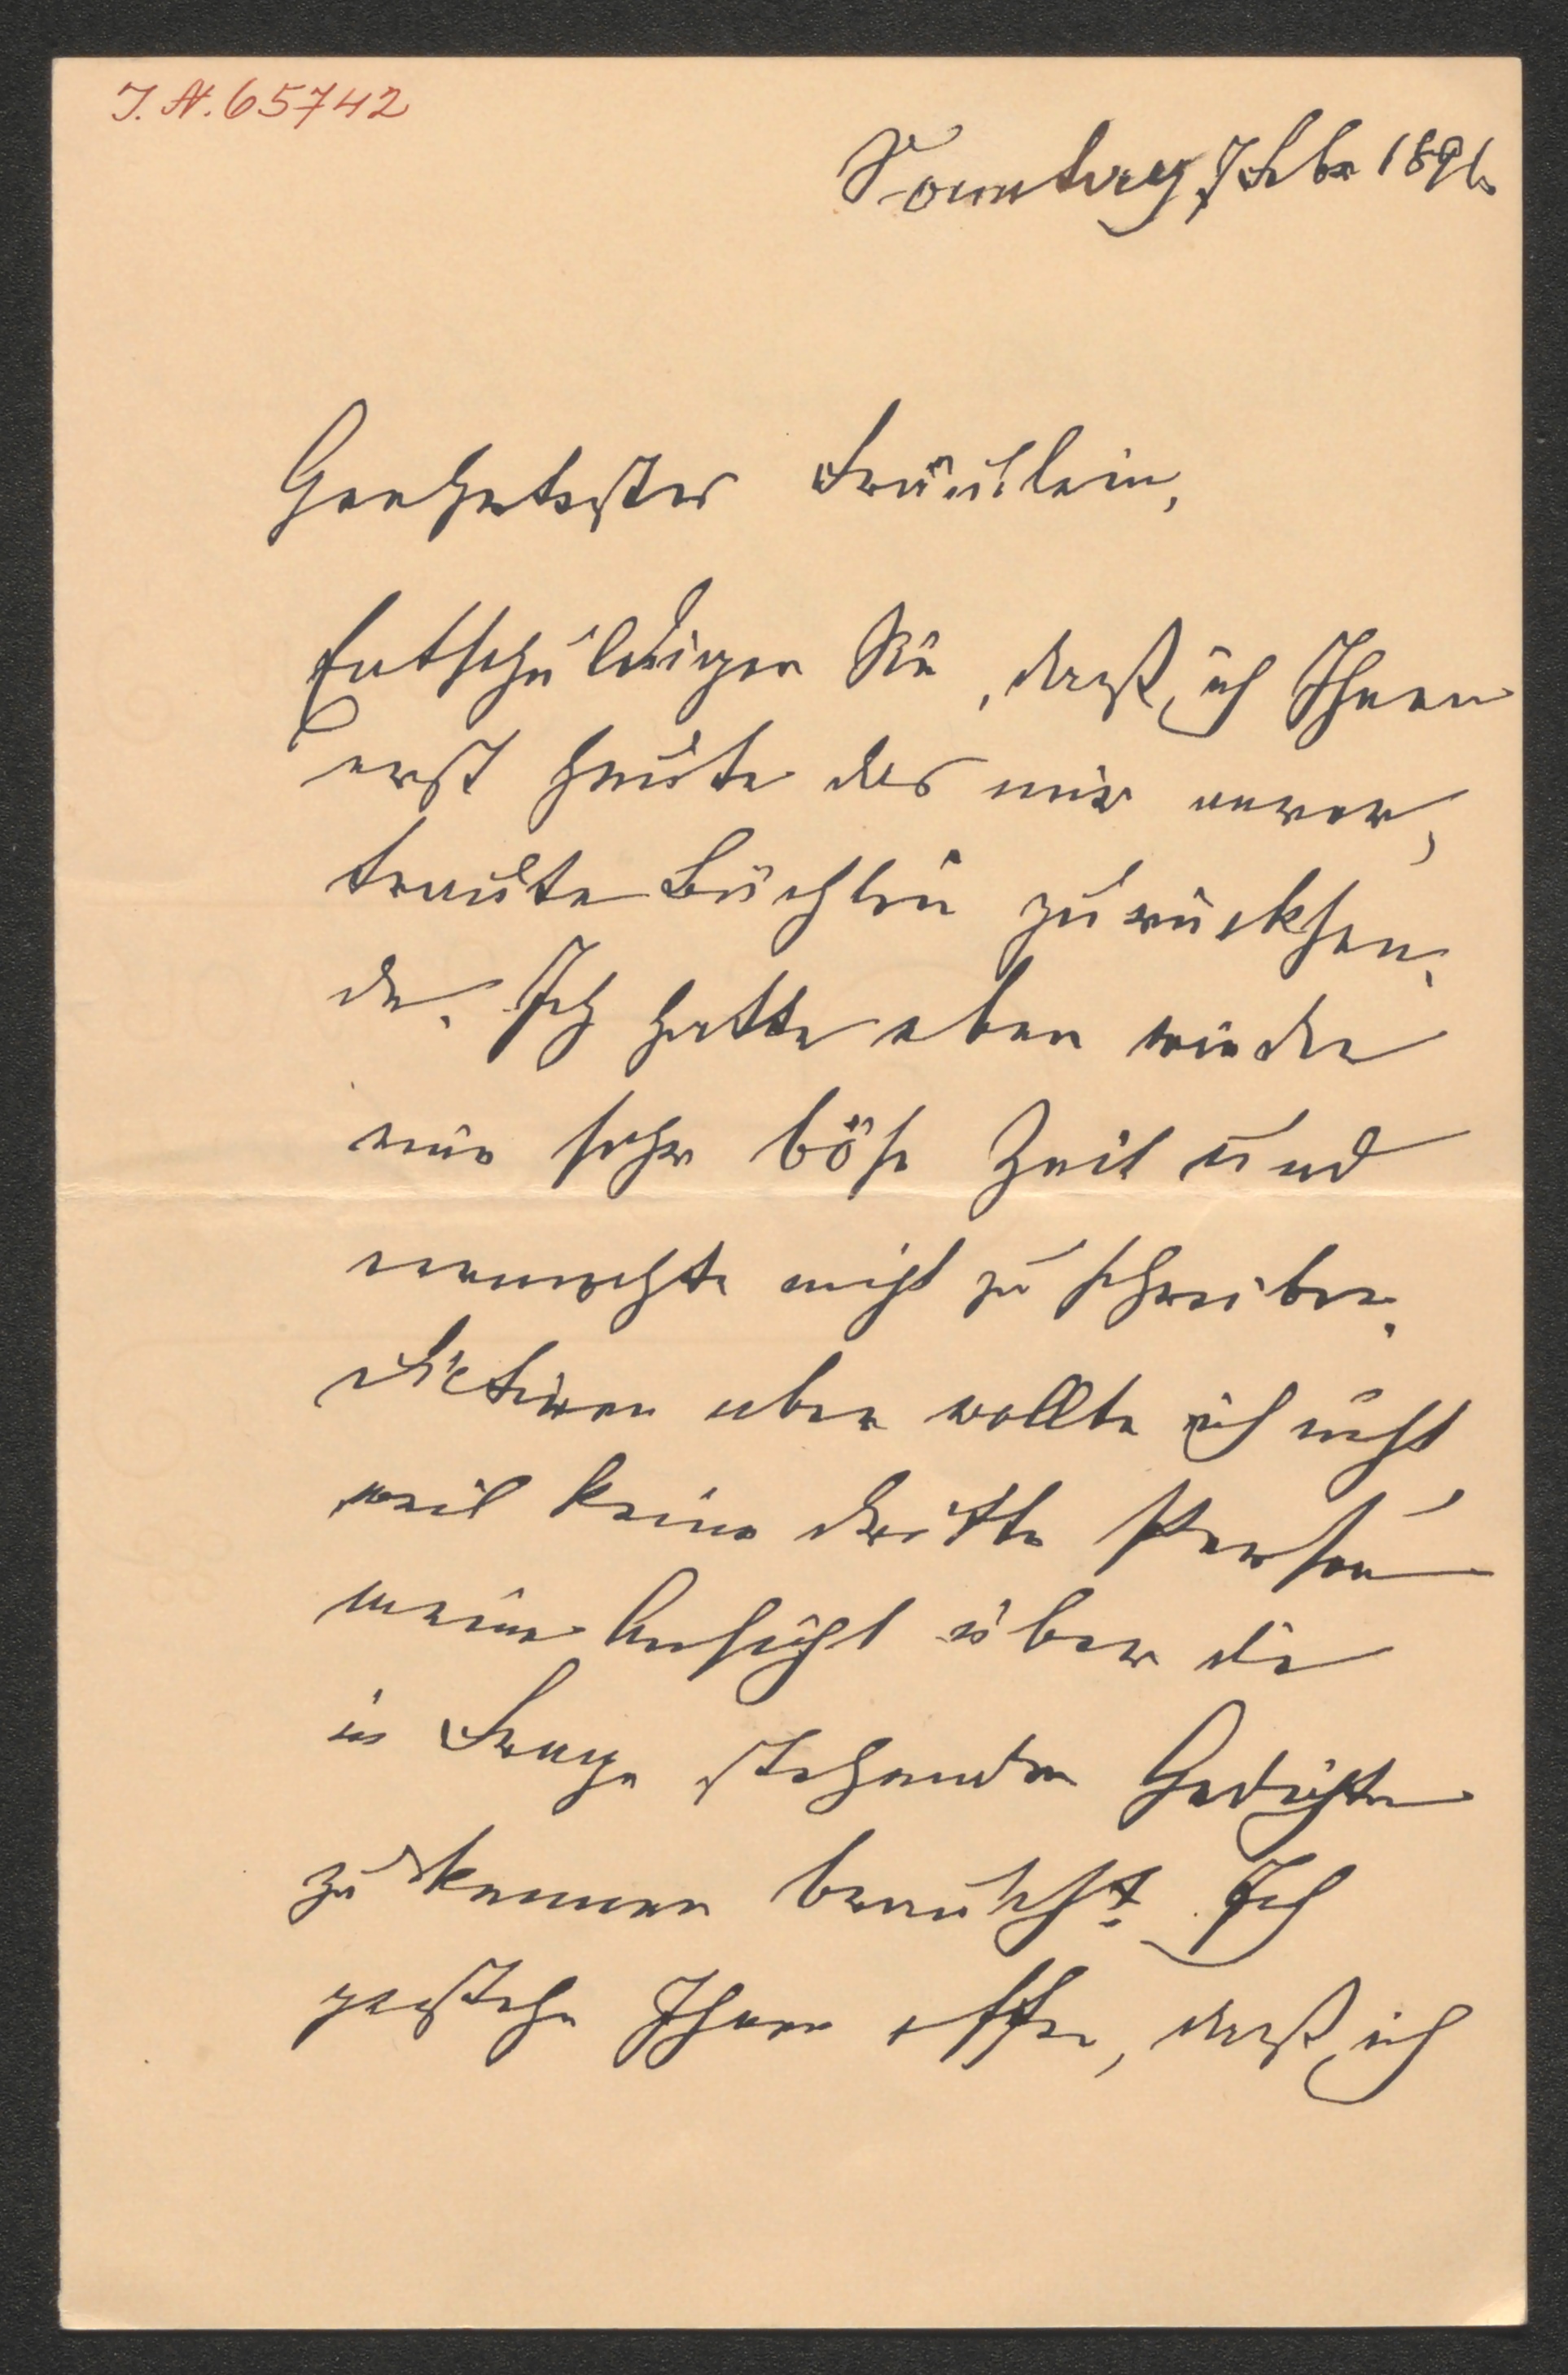 I. N. 65742
Sonntag, 7 Febr 1891.
Geehrtestes Fräulein,
Entschuldigen Sie, daß ich Ihnen
erst heute das mir anver¬
traute Büchlein zurücksen¬
de. Ich hatte eben wieder
eine sehr böse Zeit und
vermochte nicht zu schreiben.
Dictiren aber wollte ich nicht
weil keine dritte Person
meine Ansicht über die
in Frage stehenden Gedichte
zu kennen braucht. Ich
gestehe Ihnen offen, daß ich